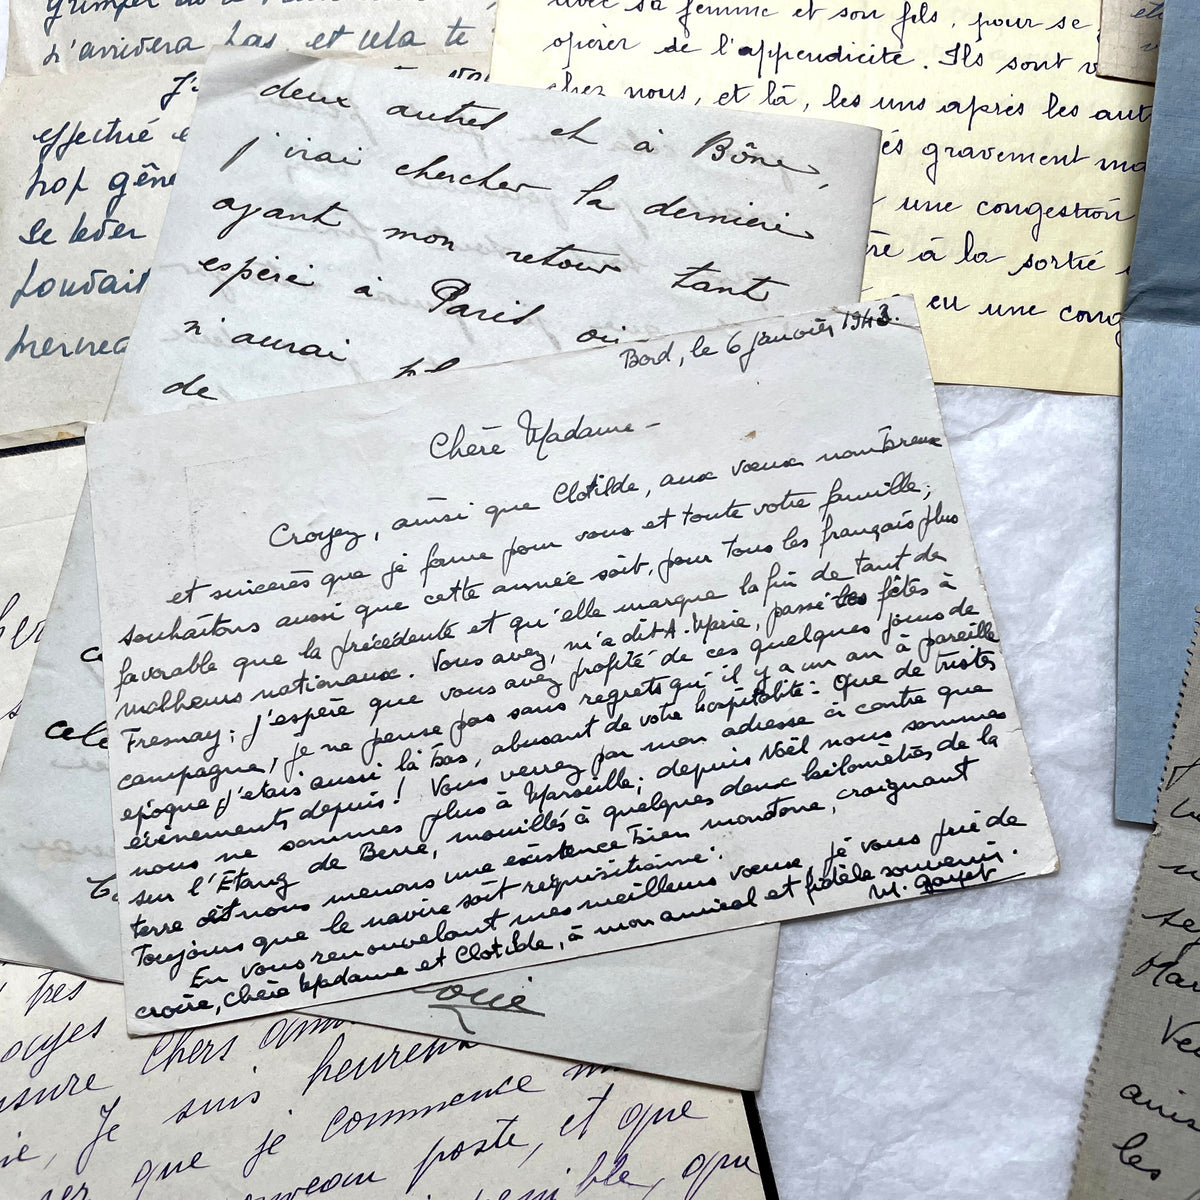 n'arrivera pas, et cela te
effectué
trop gêne
se lever
voudrait
avec sa femme et son fils, pour se
opérer de l'appendicite. Ils sont
chez nous, et là, les uns après les aut
és gravement ma
une congestion
à la sortie
eu une cong
deux autres et à Bône,
j'irai chercher la dernière
ayant mon retour tant
espéré à Paris où
n'aurai
de
Bord, le 6 janvier 1943.
Chère Madame -
Croyez, ainsi que Clotilde, aux voeux nombreux
et sincères que je forme pour vous et toute votre famille;
souhaitons aussi que cette année soit, pour tous les français plus
favorable que la précédente et qu'elle marque la fin de tant de
malheurs nationaux. Vous avez, m'a dit A. Marie, passé les fêtes à
Fresnay; j'espère que vous avez profité de ces quelques jours de
campagne, je ne pense pas sans regrets qu'il y a un an à pareille
époque j'étais aussi là bas, abusant de votre hospitalité - Que de tristes
évènements depuis! Vous verrez par mon adresse ci contre que
nous ne sommes plus à Marseille; depuis Noël nous sommes
sur l'Étang de Berre, mouillés à quelques deux kilomètres de la
terre et nous menons une existence bien monotone, craignant
toujours que le navire soit réquisitionné.
En vous renouvelant mes meilleurs voeux, je vous prie de
croire, Chère Madame et Clotilde, à mon amical et fidèle souvenir.
très
Chers
Je suis heureux
que je commence
poste, et que
que
ains
les